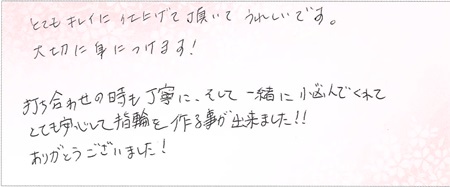 とてもキレイに仕上げて頂いてうれしいです。
大切に身につけます!
打ち合わせの時も丁寧に、そして一緒に悩んでくれて
とても安心して指輪を作る事が出来ました!!
ありがとうございました!